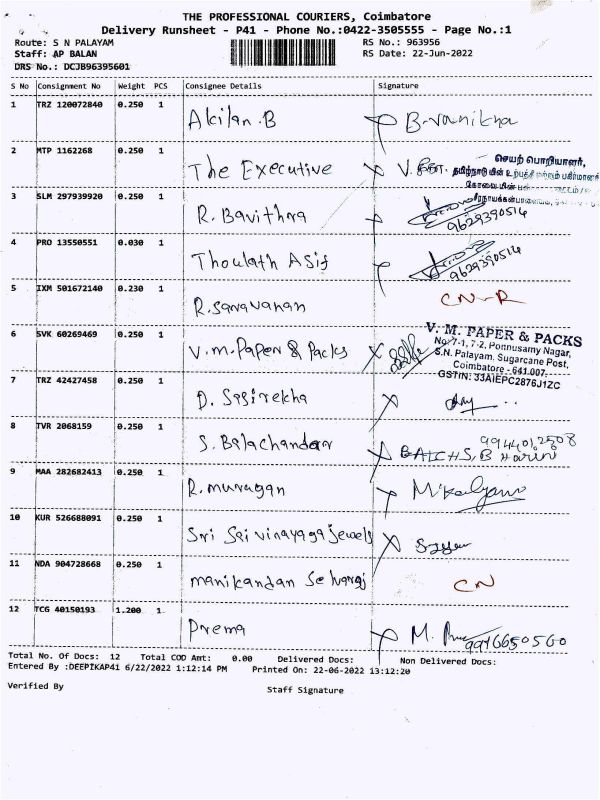 THE PROFESSIONAL COURIERS, Coimbatore
Delivery Runsheet - P41 - Phone No.:0422-3505555 - Page No.:1
Route: S N PALAYAM RS No.: 963956
Staff: AP BALAN RS Date: 22-Jun-2022
DRS No.: DCJB96395601
S No Consignment No Weight PCS Consignee Details Signature
1 TRZ 120072840 0.250 1 Akilan.B B.vanikha
2 MTP 1162268 0.250 1 The Executive
செயற் பொறியாளர்,
3 SLM 297939920 0.250 1 R. Bavithra 9629390514
4 PRO 13550551 0.030 1 Thoulath Asif 9629390514
5 IXM 501672140 0.230 1 R.saravanan CN-R
6 SVK 60269469 0.250 1 V.m.Paper & Packs
V. M. PAPER & PACKS
No:7-1, 7-2, Ponnusamy Nagar,
S.N. Palayam, Sugarcane Post,
Coimbatore - 641 007.
GSTIN: 33AIEPC2876J1ZC
7 TRZ 42427458 0.250 1 D. Sasirekha
8 TVR 2068159 0.250 1 S. Balachandar
9 MAA 282682413 0.250 1 R.murugan
10 KUR 526688091 0.250 1 Sri Sai vinayaga jewels
11 NDA 904728668 0.250 1 manikandan Selvaraj CN
12 TCG 40150193 1.200 1 Prema
Total No. Of Docs: 12 Total COD Amt: 0.00 Delivered Docs: Non Delivered Docs:
Entered By :DEEPIKAP41 6/22/2022 1:12:14 PM Printed On: 22-06-2022 13:12:20
Verified By Staff Signature